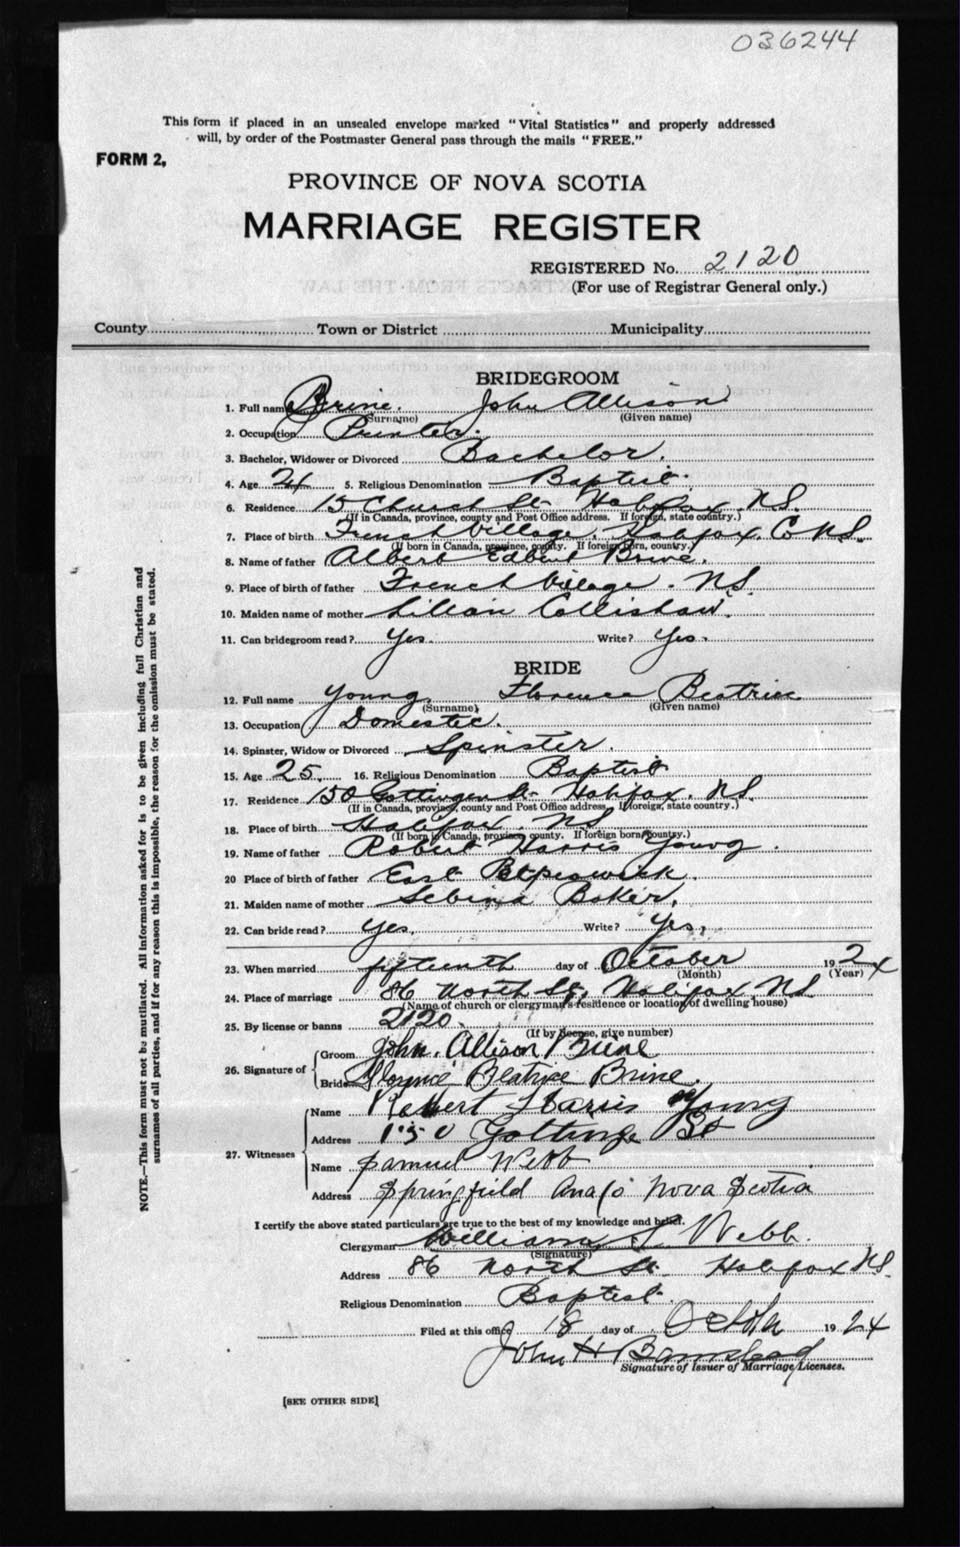 036244
This form if placed in an unsealed envelope marked "Vital Statistics" and properly addressed
will, by order of the Postmaster General pass through the mails "FREE."
FORM 2,
PROVINCE OF NOVA SCOTIA
MARRIAGE REGISTER
REGISTERED No. 2120
(For use of Registrar General only.)
County Town or District Municipality
BRIDEGROOM
1. Full name Brine. John Allison
(Surname) (Given name)
2. Occupation Printer.
3. Bachelor, Widower or Divorced Bachelor.
4. Age 24 5. Religious Denomination Baptist.
6. Residence 15 Church St. Halifax, N.S.
(If in Canada, province, county and Post Office address. If foreign, state country.)
7. Place of birth French Village, Halifax, Co N.S.
(If born in Canada, province, county. If foreign born, country.)
8. Name of father Albert Edbert Brine.
9. Place of birth of father French Village. N.S.
10. Maiden name of mother Lillian Collishaw.
11. Can bridegroom read? Yes. Write? Yes.
BRIDE
12. Full name Young, Florence Beatrice
(Surname) (Given name)
13. Occupation Domestic.
14. Spinster, Widow or Divorced Spinster.
15. Age 25. 16. Religious Denomination Baptist
17. Residence 150 Gottingen St. Halifax, N.S.
(If in Canada, province, county and Post Office address, If foreign, state country.)
18. Place of birth Halifax, N.S
(If born in Canada, province county. If foreign born, country.)
19. Name of father Robert Harris Young.
20 Place of birth of father East Petpeswick.
21. Maiden name of mother Sebina Baker.
22. Can bride read? Yes. Write? Yes.
23. When married fifteenth day of October 1924
(Month) (Year)
24. Place of marriage 86 North St., Halifax, N.S
(Name of church or clergyman's residence or location of dwelling house)
25. By license or banns 2120.
(If by license, give number)
26. Signature of
Groom John. Allison Brine
Bride Florence Beatrice Brine.
27. Witnesses
Name Robert Harris Young
Address 150 Gottinge St
Name Samuel Webb
Address Springfield Anap Nova Scotia
I certify the above stated particulars are true to the best of my knowledge and belief.
Clergyman William S Webb.
(Signature)
Address 86 North St. Halifax N.S.
Religious Denomination Baptist.
Filed at this office 18 day of 1924
John H Barnstead
Signature of Issuer of Marriage Licenses.
[SEE OTHER SIDE]
NOTE.—This form must not be mutilated. All information asked for is to be given including full Christian and
surnames of all parties, and if for any reason this is impossible, the reason for the omission must be stated.